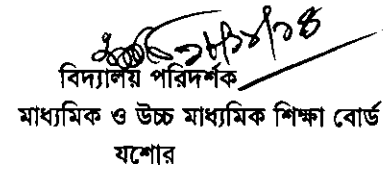 বিদ্যালয় পরিদর্শক
মাধ্যমিক ও উচ্চ মাধ্যমিক শিক্ষা বোর্ড
যশোর